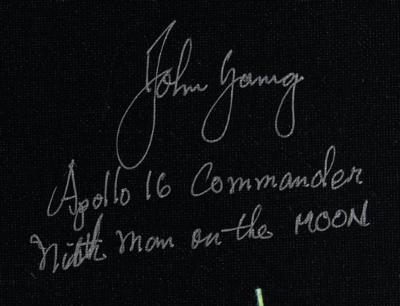 John Young
Apollo 16 Commander
Ninth man on the MOON